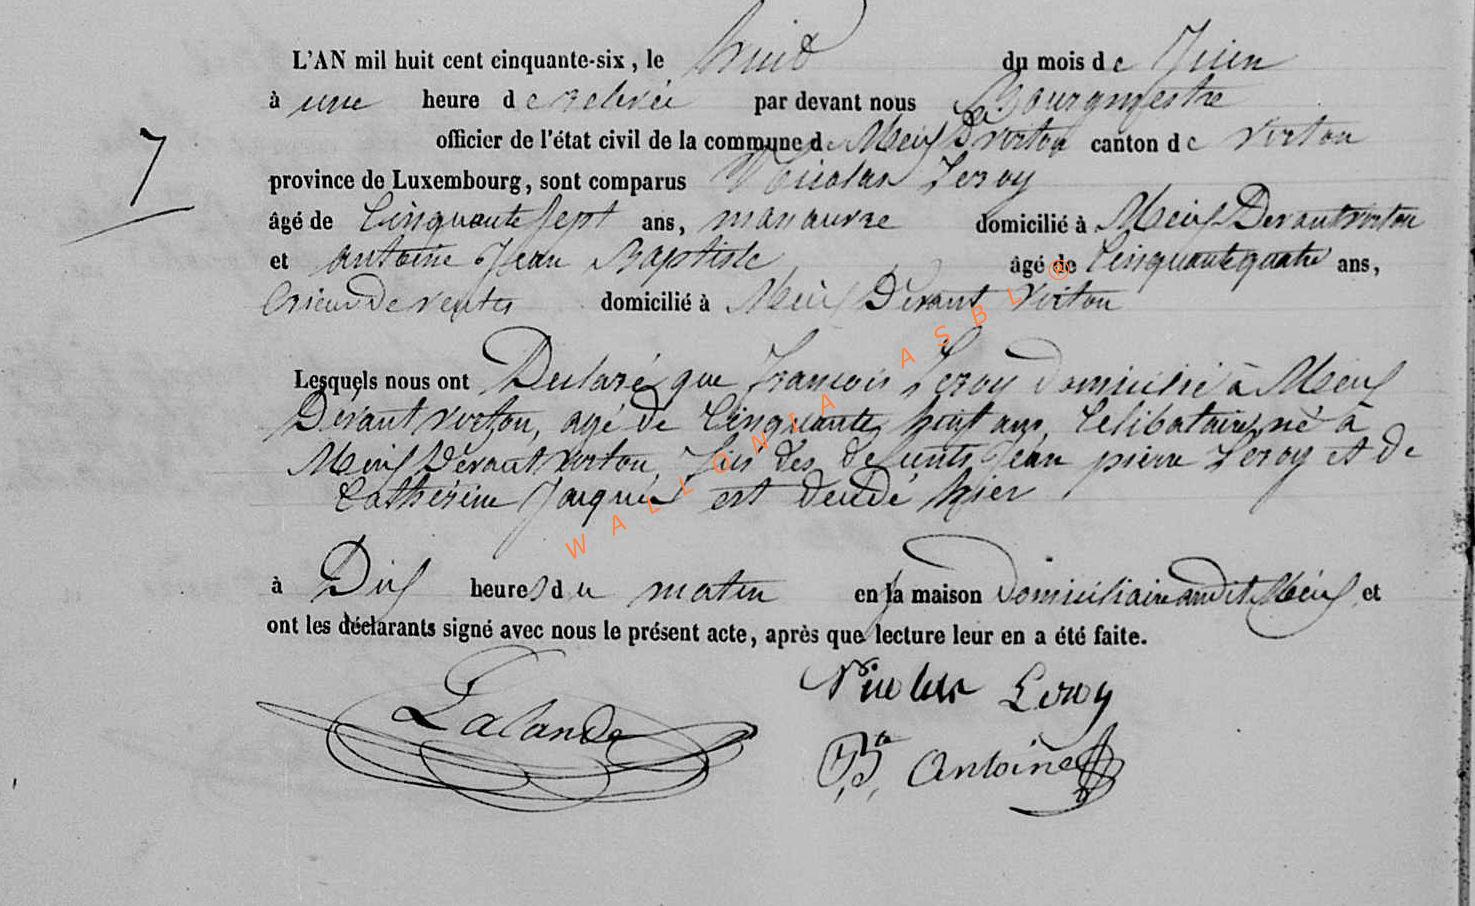 L'AN mil huit cent cinquante-six, le huit du mois de Juin
à une heure de relevée par devant nous Bourgmestre
7 officier de l'état civil de la commune de Meix D virton canton de virton
province de Luxembourg, sont comparus Nicolas Leroy
âgé de Cinquante sept ans, manœuvre domicilié à Meix Devant virton
et Antoine Jean Baptiste âgé de Cinquante quatre ans,
Crieur de ventes domicilié à Meix Devant Virton
Lesquels nous ont Declaré que François Leroy domicilié à Meix
Devant virton, agé de Cinquante huit ans, Celibataire, né à
Meix Devant virton, fils des defunts Jean pierre Leroy et de
Catherine Jacques est decedé hier
à Dix heures du matin en sa maison Domiciliaire audit Meix et
ont les déclarants signé avec nous le présent acte, après que lecture leur en a été faite.
Lalande Nicolas Leroy
J, Bte, Antoine
WALLONIA ASBL ®